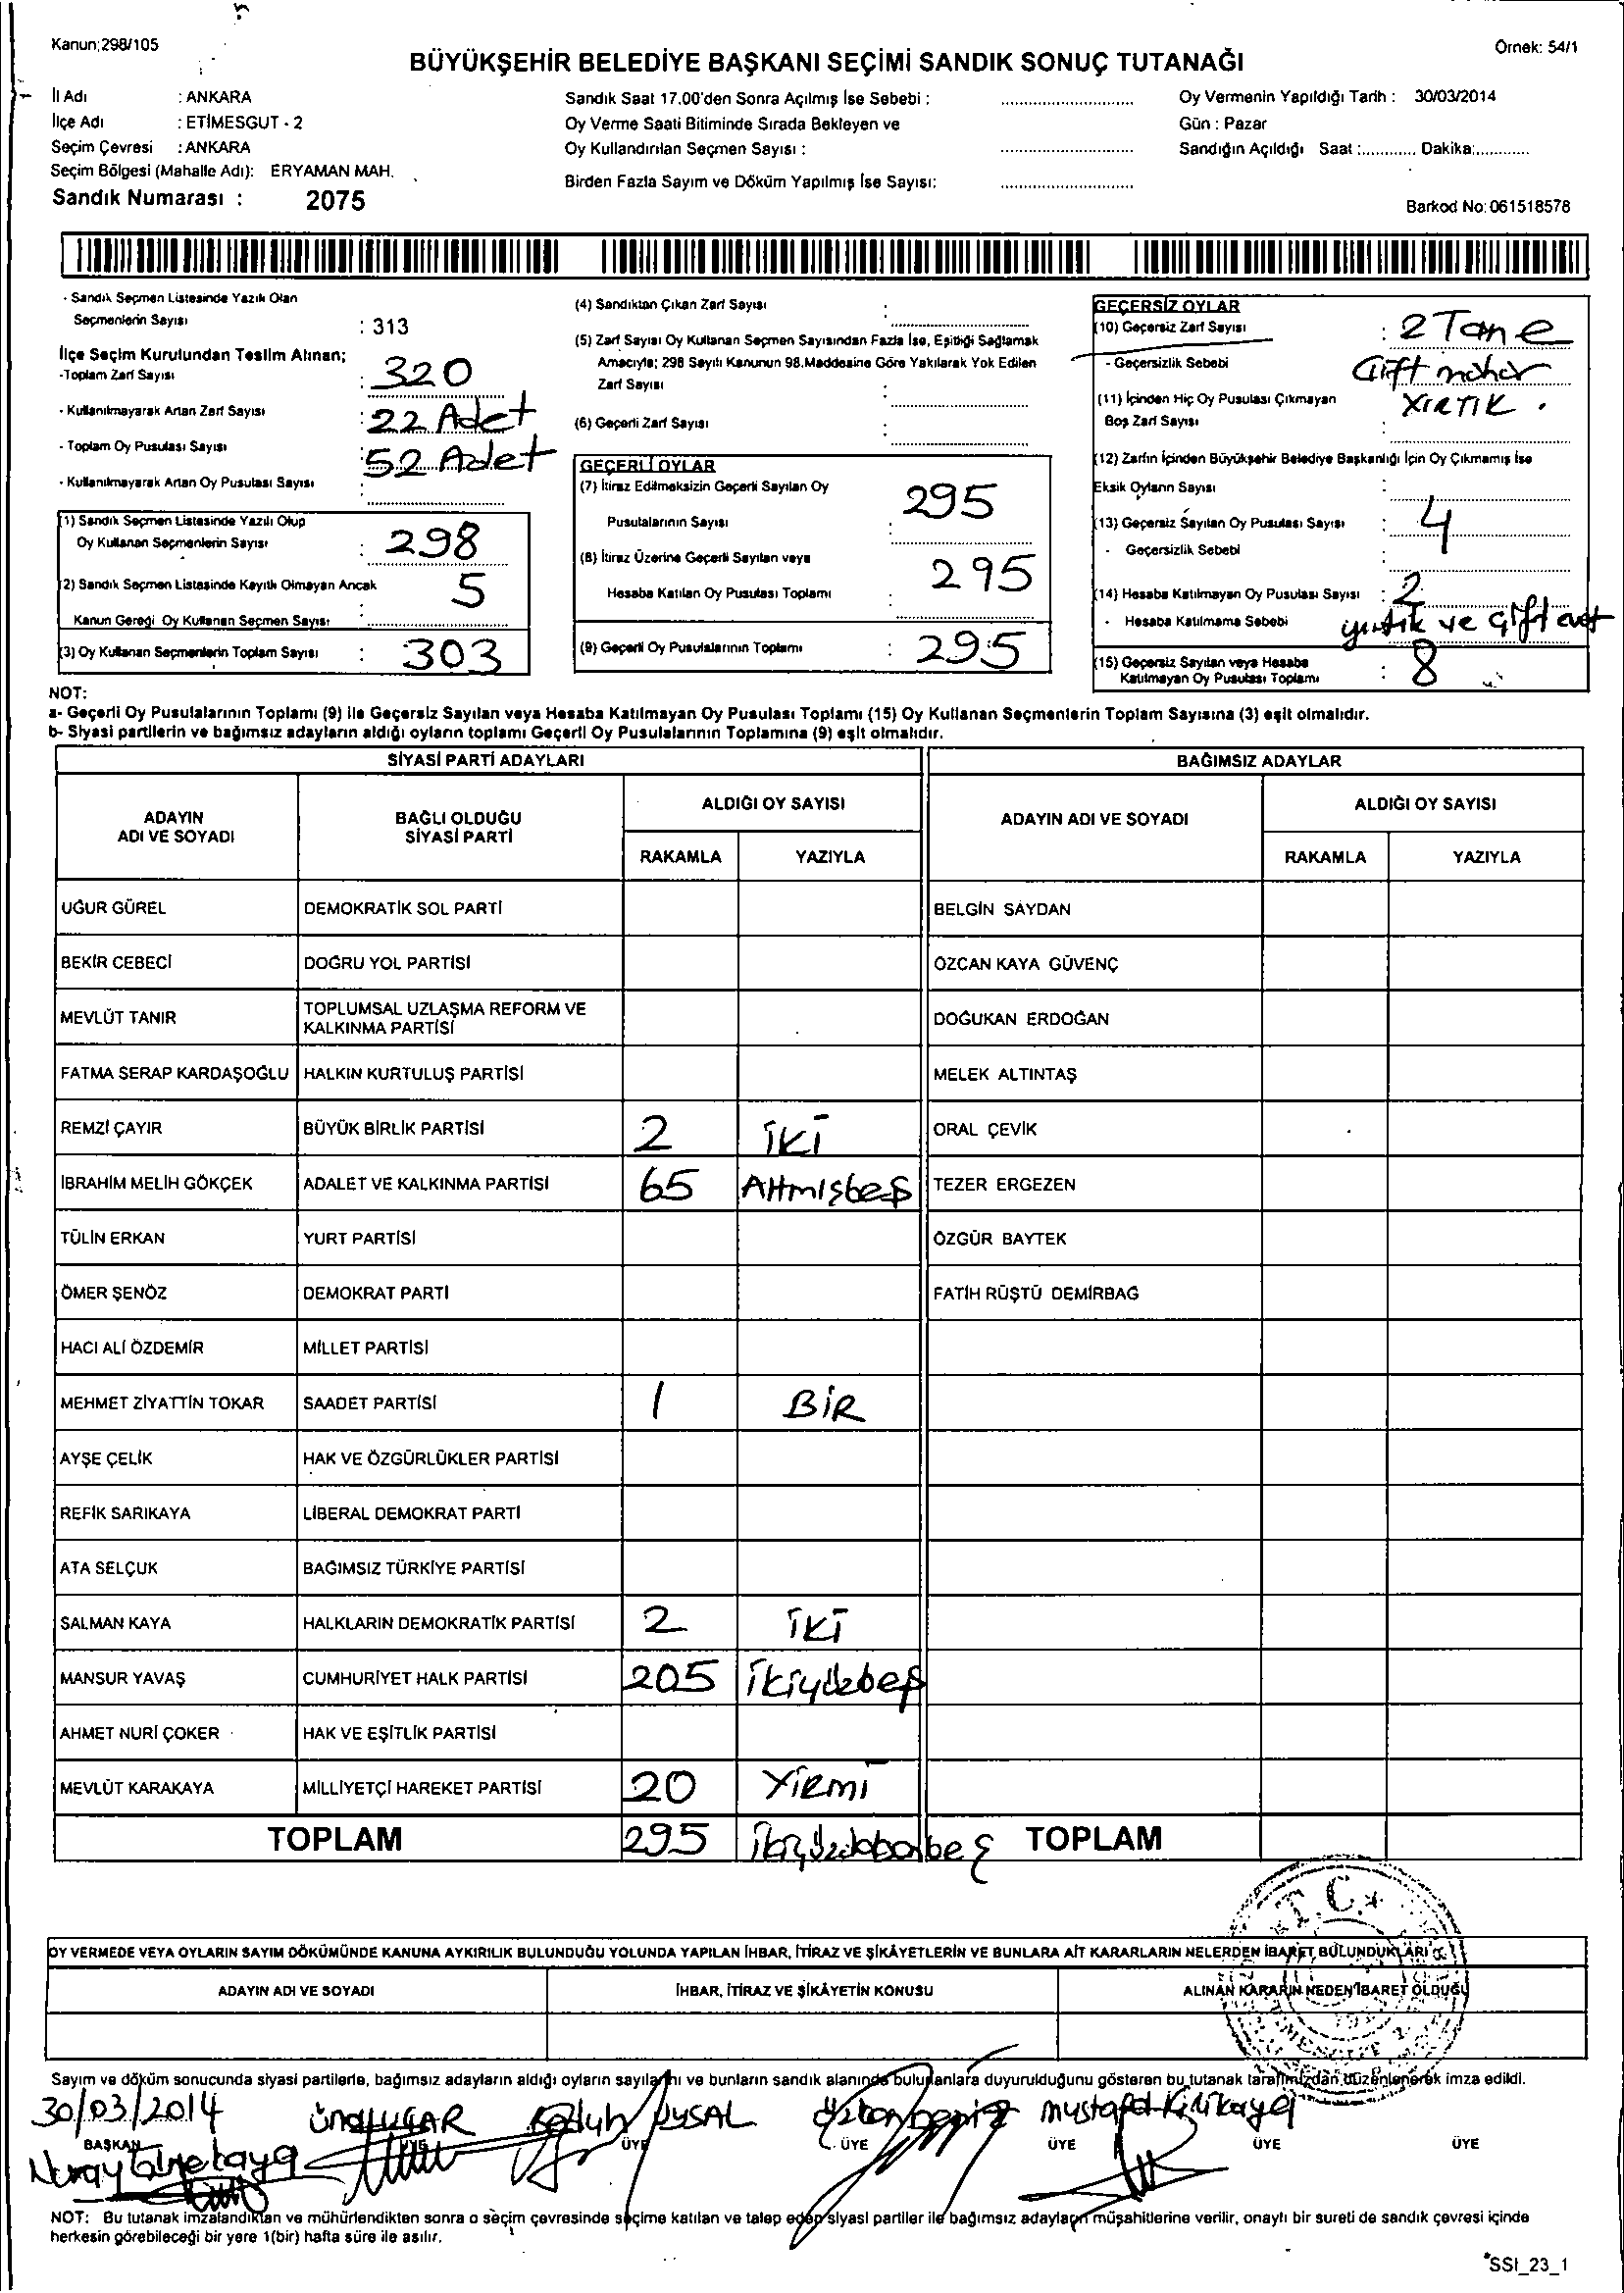 Kanun:298/105
Örnek: 54/1
BÜYÜKŞEHİR BELEDİYE BAŞKANI SEÇİMİ SANDIK SONUÇ TUTANAĞI
İl Adı : ANKARA
İlçe Adı : ETİMESGUT - 2
Seçim Çevresi : ANKARA
Seçim Bölgesi (Mahalle Adı): ERYAMAN MAH.
Sandık Numarası : 2075
Sandık Saat 17.00'den Sonra Açılmış İse Sebebi :
Oy Verme Saati Bitiminde Sırada Bekleyen ve
Oy Kullandırılan Seçmen Sayısı :
Birden Fazla Sayım ve Döküm Yapılmış İse Sayısı:
Oy Vermenin Yapıldığı Tarih : 30/03/2014
Gün : Pazar
Sandığın Açıldığı Saat :............ Dakika:............
Barkod No: 061518578
- Sandık Seçmen Listesinde Yazılı Olan
Seçmenlerin Sayısı : 313
İlçe Seçim Kurulundan Teslim Alınan;
-Toplam Zarf Sayısı : 320
- Kullanılmayarak Artan Zarf Sayısı : 22 Adet
- Toplam Oy Pusulası Sayısı : 52 Adet
- Kullanılmayarak Artan Oy Pusulası Sayısı :
(1) Sandık Seçmen Listesinde Yazılı Olup
Oy Kullanan Seçmenlerin Sayısı : 298
(2) Sandık Seçmen Listesinde Kayıtlı Olmayan Ancak
Kanun Gereği Oy Kullanan Seçmen Sayısı : 5
(3) Oy Kullanan Seçmenlerin Toplam Sayısı : 303
(4) Sandıktan Çıkan Zarf Sayısı :
(5) Zarf Sayısı Oy Kullanan Seçmen Sayısından Fazla İse, Eşitliği Sağlamak
Amacıyla; 298 Sayılı Kanunun 98.Maddesine Göre Yakılarak Yok Edilen
Zarf Sayısı :
(6) Geçerli Zarf Sayısı :
GEÇERLİ OYLAR
(7) İtiraz Edilmeksizin Geçerli Sayılan Oy
Pusulalarının Sayısı : 295
(8) İtiraz Üzerine Geçerli Sayılan veya
Hesaba Katılan Oy Pusulası Toplamı : 295
(9) Geçerli Oy Pusulalarının Toplamı : 295
GEÇERSİZ OYLAR
(10) Geçersiz Zarf Sayısı : 2 Tane
- Geçersizlik Sebebi Çift mühür
YIRTIK .
(11) İçinden Hiç Oy Pusulası Çıkmayan
Boş Zarf Sayısı :
(12) Zarfın İçinden Büyükşehir Belediye Başkanlığı İçin Oy Çıkmamış İse
Eksik Oyların Sayısı :
(13) Geçersiz Sayılan Oy Pusulası Sayısı : 4
- Geçersizlik Sebebi :
(14) Hesaba Katılmayan Oy Pusulası Sayısı : 2
- Hesaba Katılmama Sebebi yırtık ve Çift evet
(15) Geçersiz Sayılan veya Hesaba
Katılmayan Oy Pusulası Toplamı : 8
NOT:
a- Geçerli Oy Pusulalarının Toplamı (9) ile Geçersiz Sayılan veya Hesaba Katılmayan Oy Pusulası Toplamı (15) Oy Kullanan Seçmenlerin Toplam Sayısına (3) eşit olmalıdır.
b- Siyasi partilerin ve bağımsız adayların aldığı oyların toplamı Geçerli Oy Pusulalarının Toplamına (9) eşit olmalıdır.
SİYASİ PARTİ ADAYLARI
BAĞIMSIZ ADAYLAR
ADAYIN ADI VE SOYADI
BAĞLI OLDUĞU SİYASİ PARTİ
ALDIĞI OY SAYISI
RAKAMLA YAZIYLA
ADAYIN ADI VE SOYADI
ALDIĞI OY SAYISI
RAKAMLA YAZIYLA
UĞUR GÜREL DEMOKRATİK SOL PARTİ BELGİN SAYDAN
BEKİR CEBECİ DOĞRU YOL PARTİSİ ÖZCAN KAYA GÜVENÇ
MEVLÜT TANIR TOPLUMSAL UZLAŞMA REFORM VE KALKINMA PARTİSİ DOĞUKAN ERDOĞAN
FATMA SERAP KARDAŞOĞLU HALKIN KURTULUŞ PARTİSİ MELEK ALTINTAŞ
REMZİ ÇAYIR BÜYÜK BİRLİK PARTİSİ 2 İKİ ORAL ÇEVİK
İBRAHİM MELİH GÖKÇEK ADALET VE KALKINMA PARTİSİ 65 Altmışbeş TEZER ERGEZEN
TÜLİN ERKAN YURT PARTİSİ ÖZGÜR BAYTEK
ÖMER ŞENÖZ DEMOKRAT PARTİ FATİH RÜŞTÜ DEMİRBAĞ
HACI ALİ ÖZDEMİR MİLLET PARTİSİ
MEHMET ZİYATTİN TOKAR SAADET PARTİSİ 1 BİR
AYŞE ÇELİK HAK VE ÖZGÜRLÜKLER PARTİSİ
REFİK SARIKAYA LİBERAL DEMOKRAT PARTİ
ATA SELÇUK BAĞIMSIZ TÜRKİYE PARTİSİ
SALMAN KAYA HALKLARIN DEMOKRATİK PARTİSİ 2 İKİ
MANSUR YAVAŞ CUMHURİYET HALK PARTİSİ 205 İkiyüzbeş
AHMET NURİ ÇOKER HAK VE EŞİTLİK PARTİSİ
MEVLÜT KARAKAYA MİLLİYETÇİ HAREKET PARTİSİ 20 Yirmi
TOPLAM 295 TOPLAM
T.C.
OY VERMEDE VEYA OYLARIN SAYIM DÖKÜMÜNDE KANUNA AYKIRILIK BULUNDUĞU YOLUNDA YAPILAN İHBAR, İTİRAZ VE ŞİKÂYETLERİN VE BUNLARA AİT KARARLARIN NELERDEN İBARET BULUNDUKLARI
ADAYIN ADI VE SOYADI İHBAR, İTİRAZ VE ŞİKÂYETİN KONUSU ALINAN KARARIN NEDEN İBARET OLDUĞU
Sayım ve döküm sonucunda siyasi partilerle, bağımsız adayların aldığı oyların sayılarını ve bunların sandık alanında bulunanlara duyurulduğunu gösteren bu tutanak tarafımızdan düzenlenerek imza edildi.
30/03/2014 UYSAL mustafa
BAŞKAN ÜYE ÜYE ÜYE ÜYE ÜYE ÜYE
Nuray
NOT: Bu tutanak imzalandıktan ve mühürlendikten sonra o seçim çevresinde seçime katılan ve talep eden siyasi partiler ile bağımsız adayların müşahitlerine verilir, onaylı bir sureti de sandık çevresi içinde
herkesin görebileceği bir yere 1(bir) hafta süre ile asılır.
*SSI_23_1